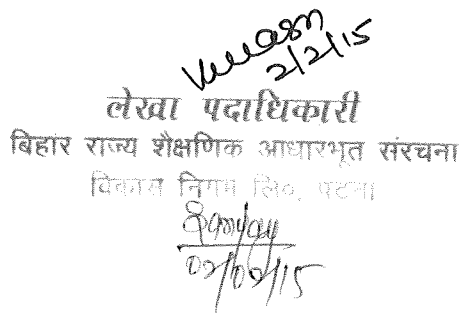 2/2/15
लेखा पदाधिकारी
बिहार राज्य शैक्षणिक आधारभूत संरचना
विकास निगम लि०, पटना
02/02/15